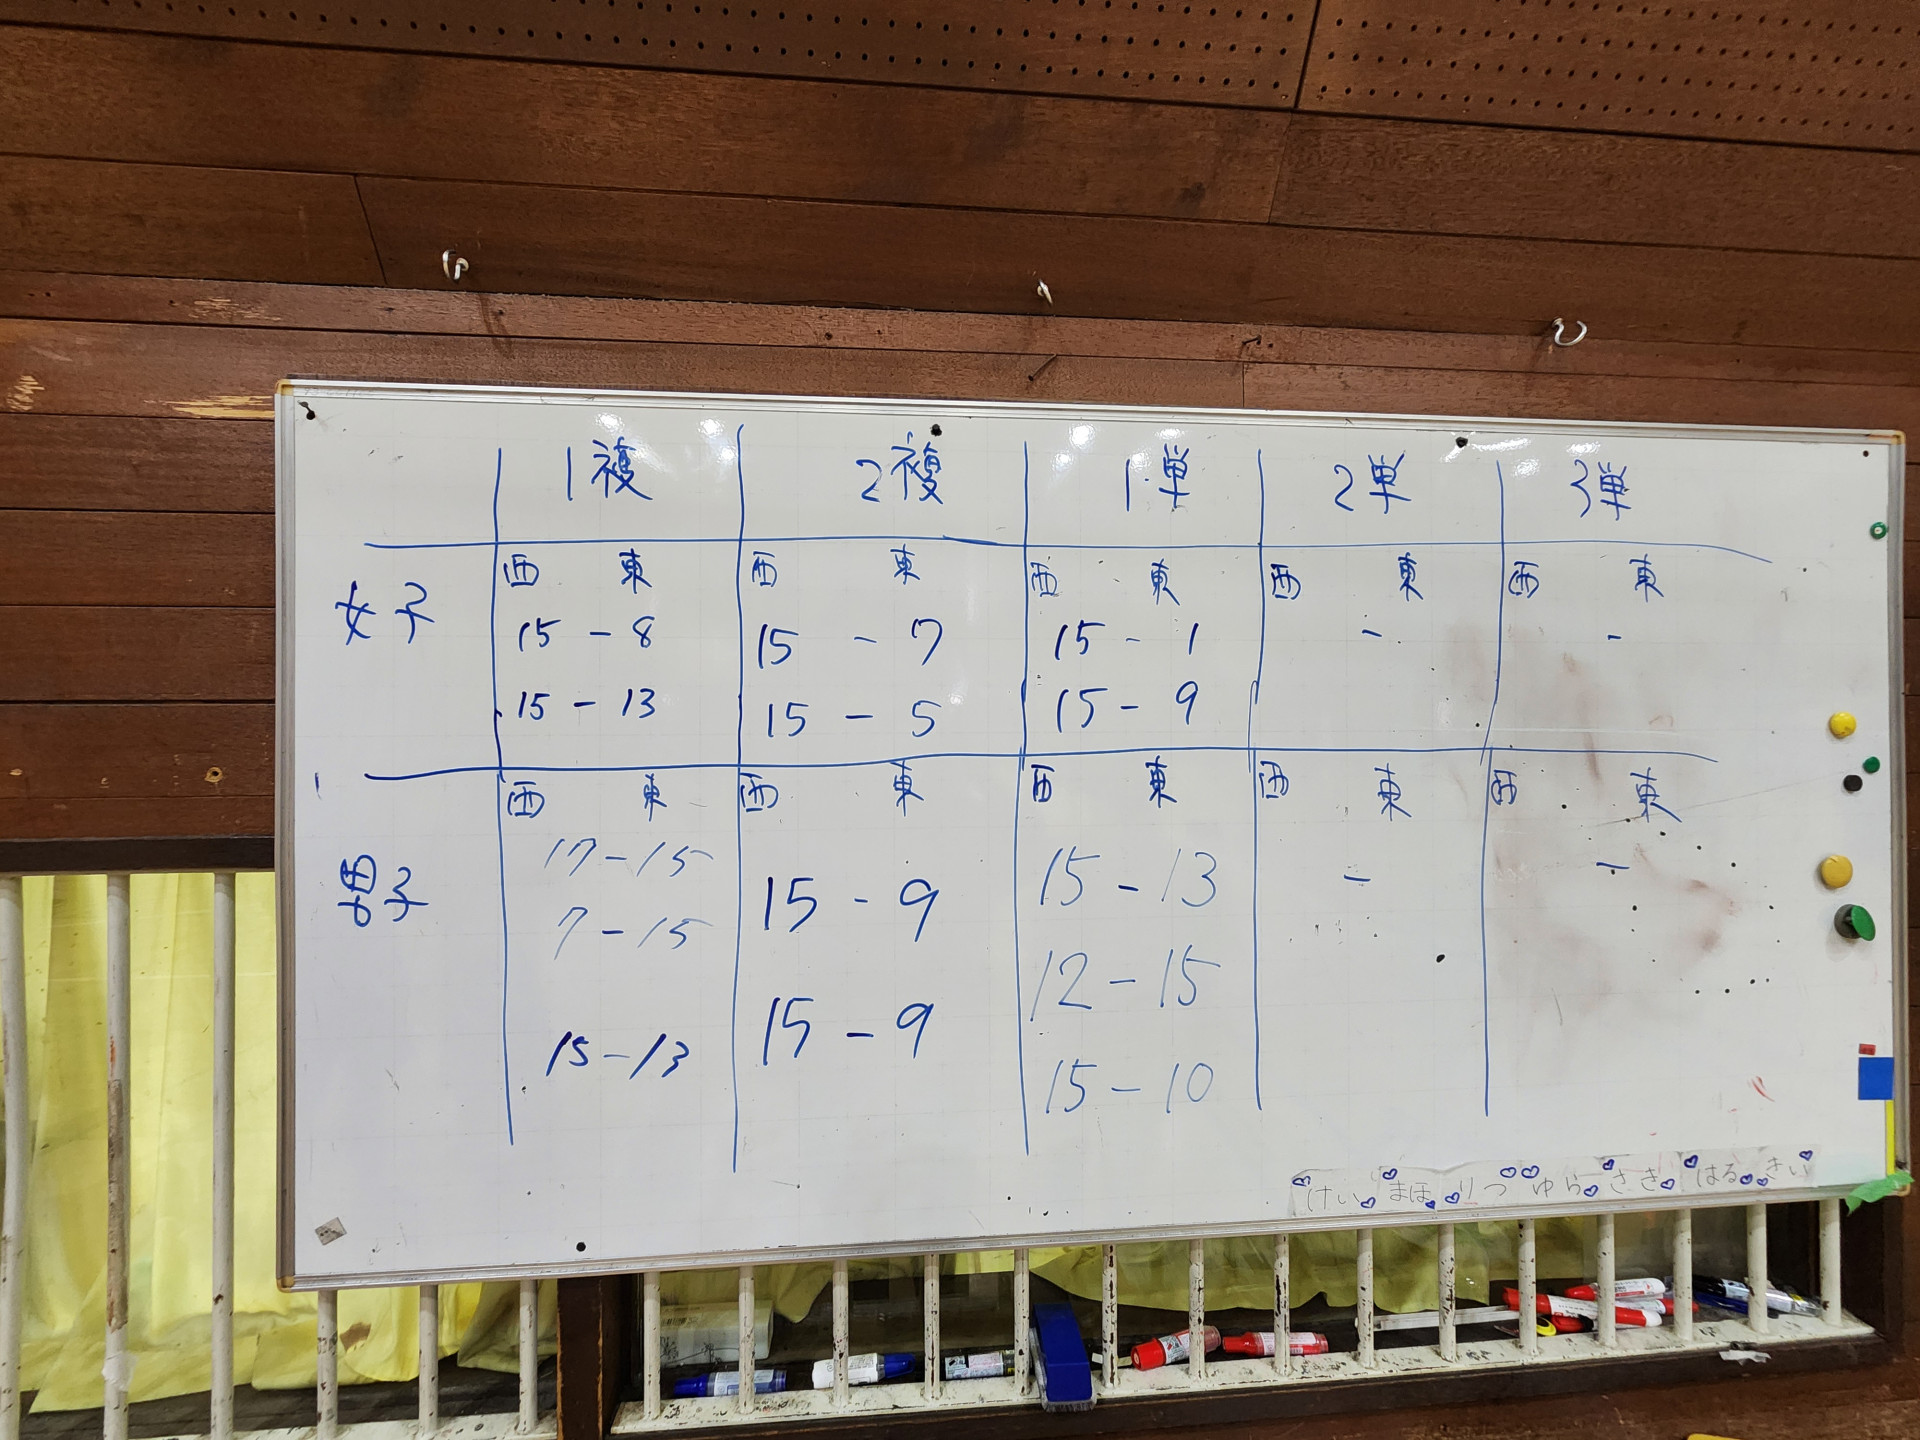 1複 2複 1単 2単 3単
女子
西 東 西 東 西 東 西 東 西 東
15 - 8 15 - 7 15 - 1 - -
15 - 13 15 - 5 15 - 9
男子
西 東 西 東 西 東 西 東 西 東
17-15 15 - 9 15 - 13 - -
7-15 12 - 15
15-13 15 - 9 15 - 10
けい まほ りつ ゆら さき はる きい